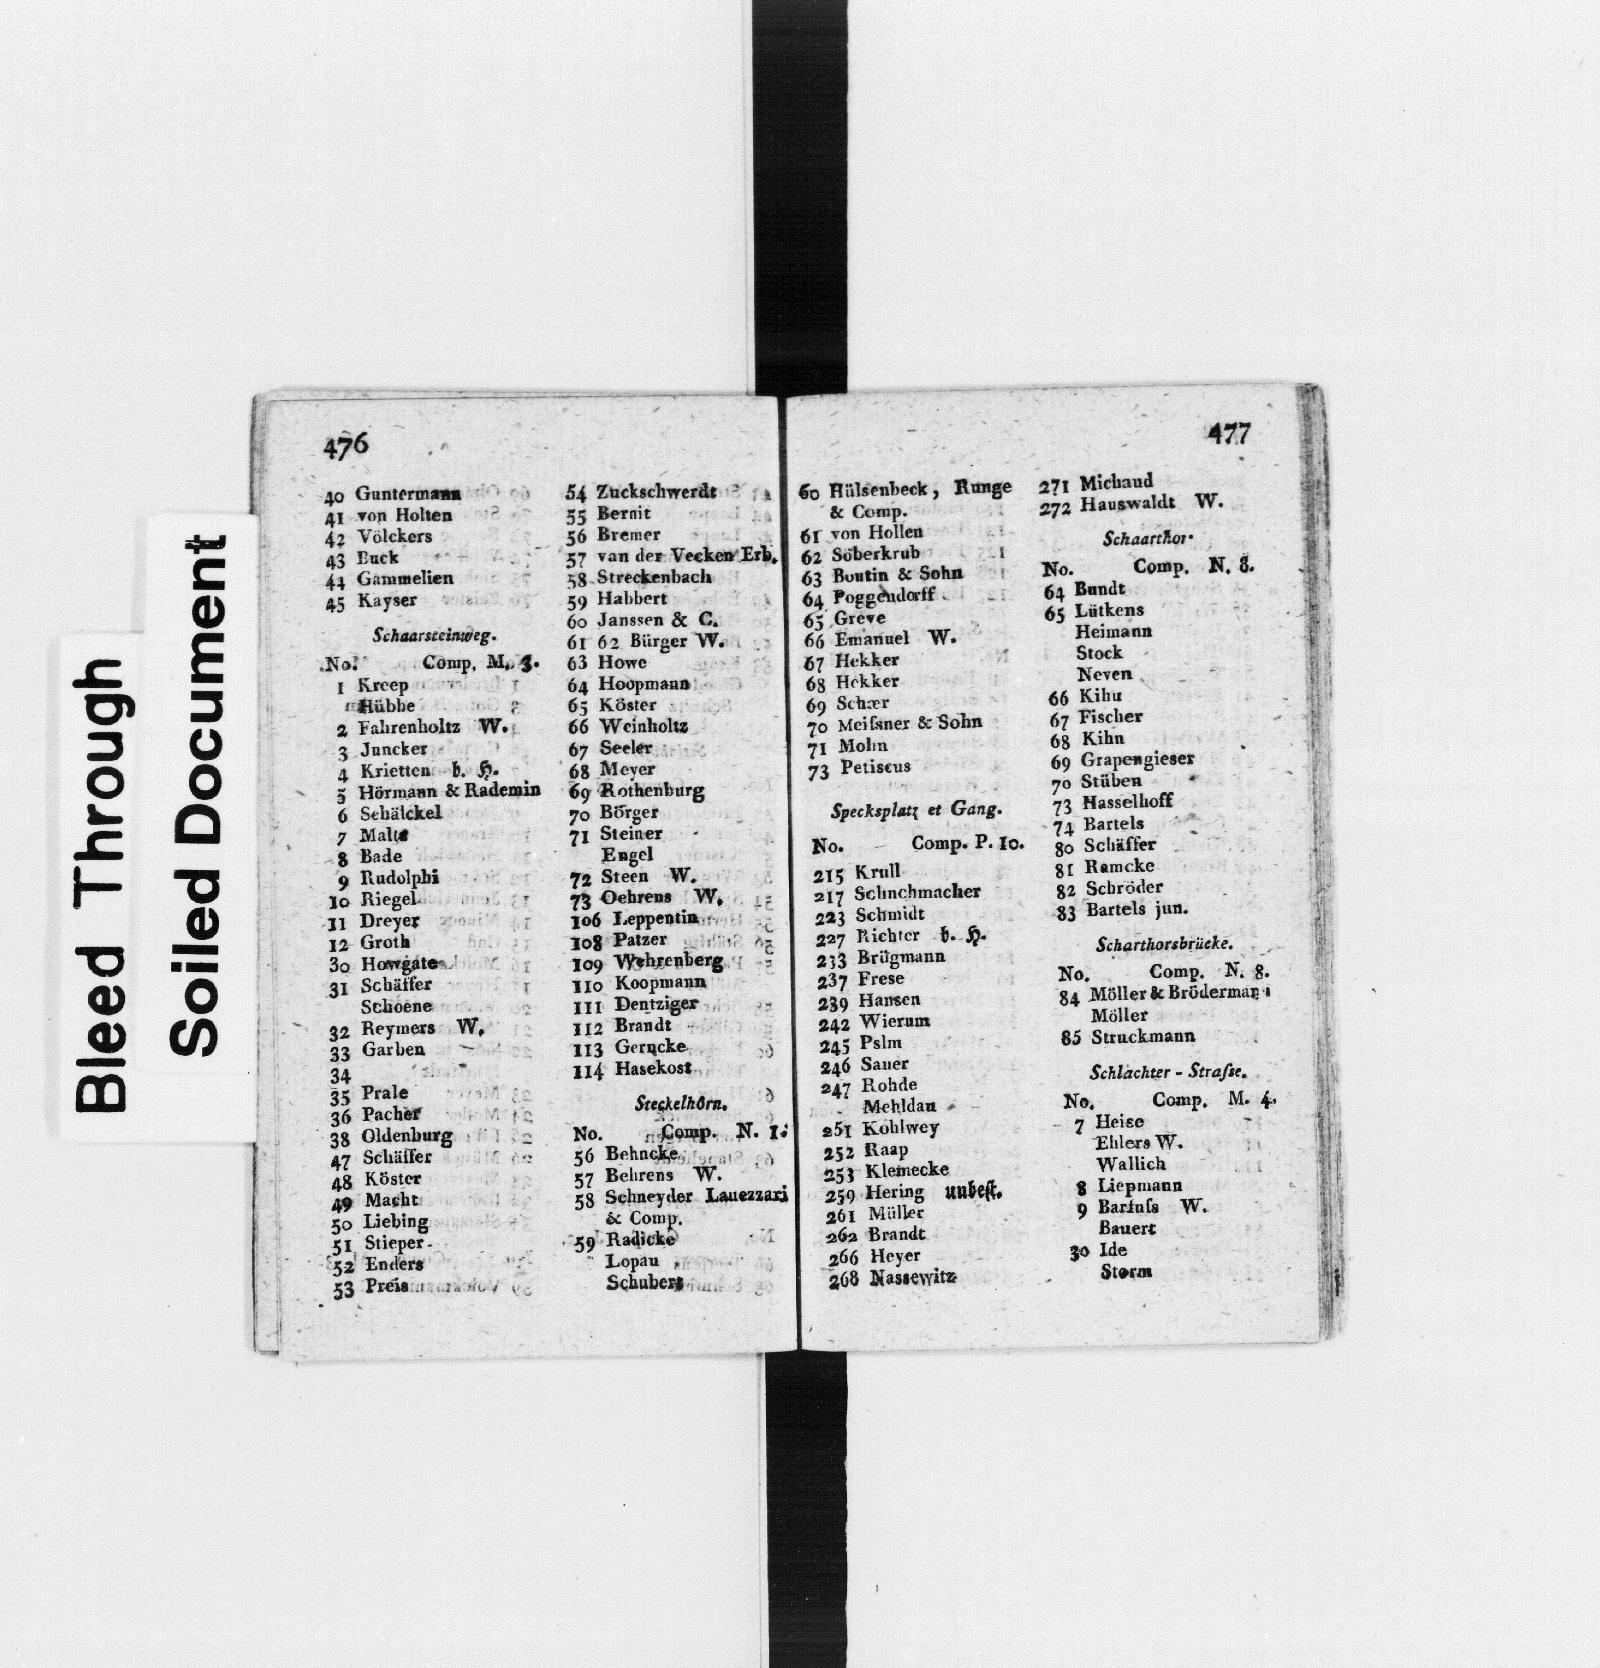 Bleed Through
Soiled Document
476
40 Guntermann
41 von Holten
42 Völckers
43 Buck
44 Gammelien
45 Kayser
Schaarsteinweg.
No. Comp. M. 3.
1 Kreep
Hübbe
2 Fahrenholtz W.
3 Juncker
4 Krietten b. H.
5 Hörmann & Rademin
6 Schälckel
7 Malte
8 Bade
9 Rudolphi
10 Riegel
11 Dreyer
12 Groth
30 Howgate
31 Schäffer
Schoene
32 Reymers W.
33 Garben
34
35 Prale
36 Pacher
38 Oldenburg
47 Schäffer
48 Köster
49 Macht
50 Liebing
51 Stieper
52 Enders
53 Preis
54 Zuckschwerdt
55 Bernit
56 Bremer
57 van der Vecken Erb.
58 Streckenbach
59 Habbert
60 Janssen & C.
61 62 Bürger W.
63 Howe
64 Hoopmann
65 Köster
66 Weinholtz
67 Seeler
68 Meyer
69 Rothenburg
70 Börger
71 Steiner
Engel
72 Steen W.
73 Oehrens W.
106 Leppentin
108 Patzer
109 Wehrenberg
110 Koopmann
111 Dentziger
112 Brandt
113 Gerncke
114 Hasekost
Steckelhörn.
No. Comp. N. 1.
56 Behncke
57 Behrens W.
58 Schneyder Lauezzari
& Comp.
59 Radicke
Lopau
Schubert
477
60 Hülsenbeck, Runge
& Comp.
61 von Hollen
62 Söberkrub
63 Boutin & Sohn
64 Poggendorff
65 Greve
66 Emanuel W.
67 Hekker
68 Hekker
69 Schær
70 Meiſsner & Sohn
71 Mohn
73 Petiscus
Specksplatz et Gang.
No. Comp. P. 10.
215 Krull
217 Schnchmacher
223 Schmidt
227 Richter b. H.
233 Brügmann
237 Frese
239 Hansen
242 Wierum
245 Pslm
246 Sauer
247 Rohde
Mehldau
251 Kohlwey
252 Raap
253 Klemecke
259 Hering unbeſt.
261 Müller
262 Brandt
266 Heyer
268 Nassewitz
271 Michaud
272 Hauswaldt W.
Schaarthor.
No. Comp. N. 8.
64 Bundt
65 Lütkens
Heimann
Stock
Neven
66 Kihn
67 Fischer
68 Kihn
69 Grapengieser
70 Stüben
73 Hasselhoff
74 Bartels
80 Schäffer
81 Ramcke
82 Schröder
83 Bartels jun.
Scharthorsbrücke.
No. Comp. N. 8.
84 Möller & Brödermann
Möller
85 Struckmann
Schlachter - Straſse.
No. Comp. M. 4.
7 Heise
Ehlers W.
Wallich
8 Liepmann
9 Barfuſs W.
Bauert
30 Ide
Storm